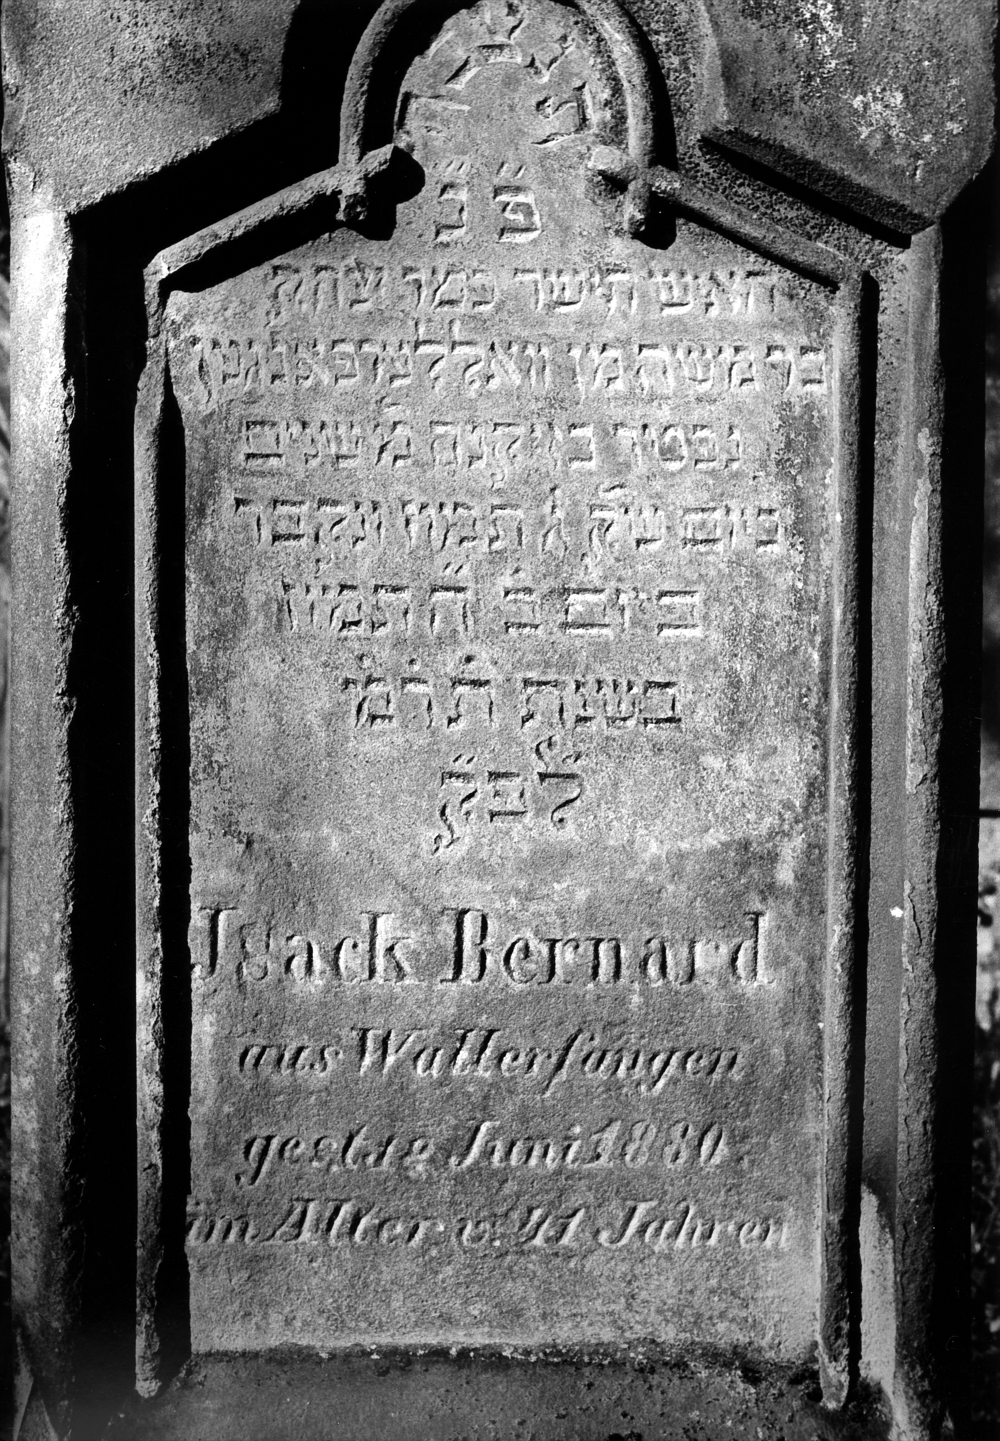 פ״נ
האיש הישר כמר יצחק
בר משה מן וואללערפאנגען
נפטר בן שנים
ביום ש״ק ג׳ תמוז ונקבר
ביום ב׳ ה״ תמוז
בשנת ת׳ר׳מ׳
לפ״ק
Isack Bernard
aus Wallerfangen
gest. Juni 1880
im Alter v. 41 Jahren